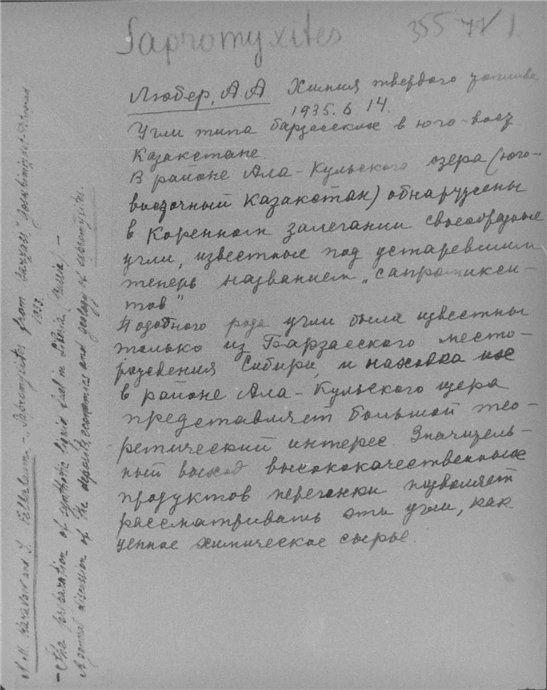 Sapromyxites
355 71/1.
Любер, А А Химия твердого топлива
1935. 6 14.
Угли типа барзасских в юго-вост.
Казакстане.
В районе Ала-Кульского озера (юго-
восточный Казакстан) обнаружены
в коренном залегании своеобразные
угли, известные под устаревшим
теперь названием „сапромикси-
тов"
Подобного рода угли были известны
только из Барзасского место-
рождения Сибири, и находка их
в районе Ала-Кульского озера
представляет большой тео-
ретический интерес. Значитель-
ный выход высококачественных
продуктов перегонки позволяет
рассматривать эти угли, как
ценное химическое сырье.
N. M. Karavaev and I. - Sapromyxites from Barzas,
1932.
- The preparation of synthetic liquid fuel in Siberia, Russia. -
A general discussion of the deposits, economics and geology of sapromyxites.